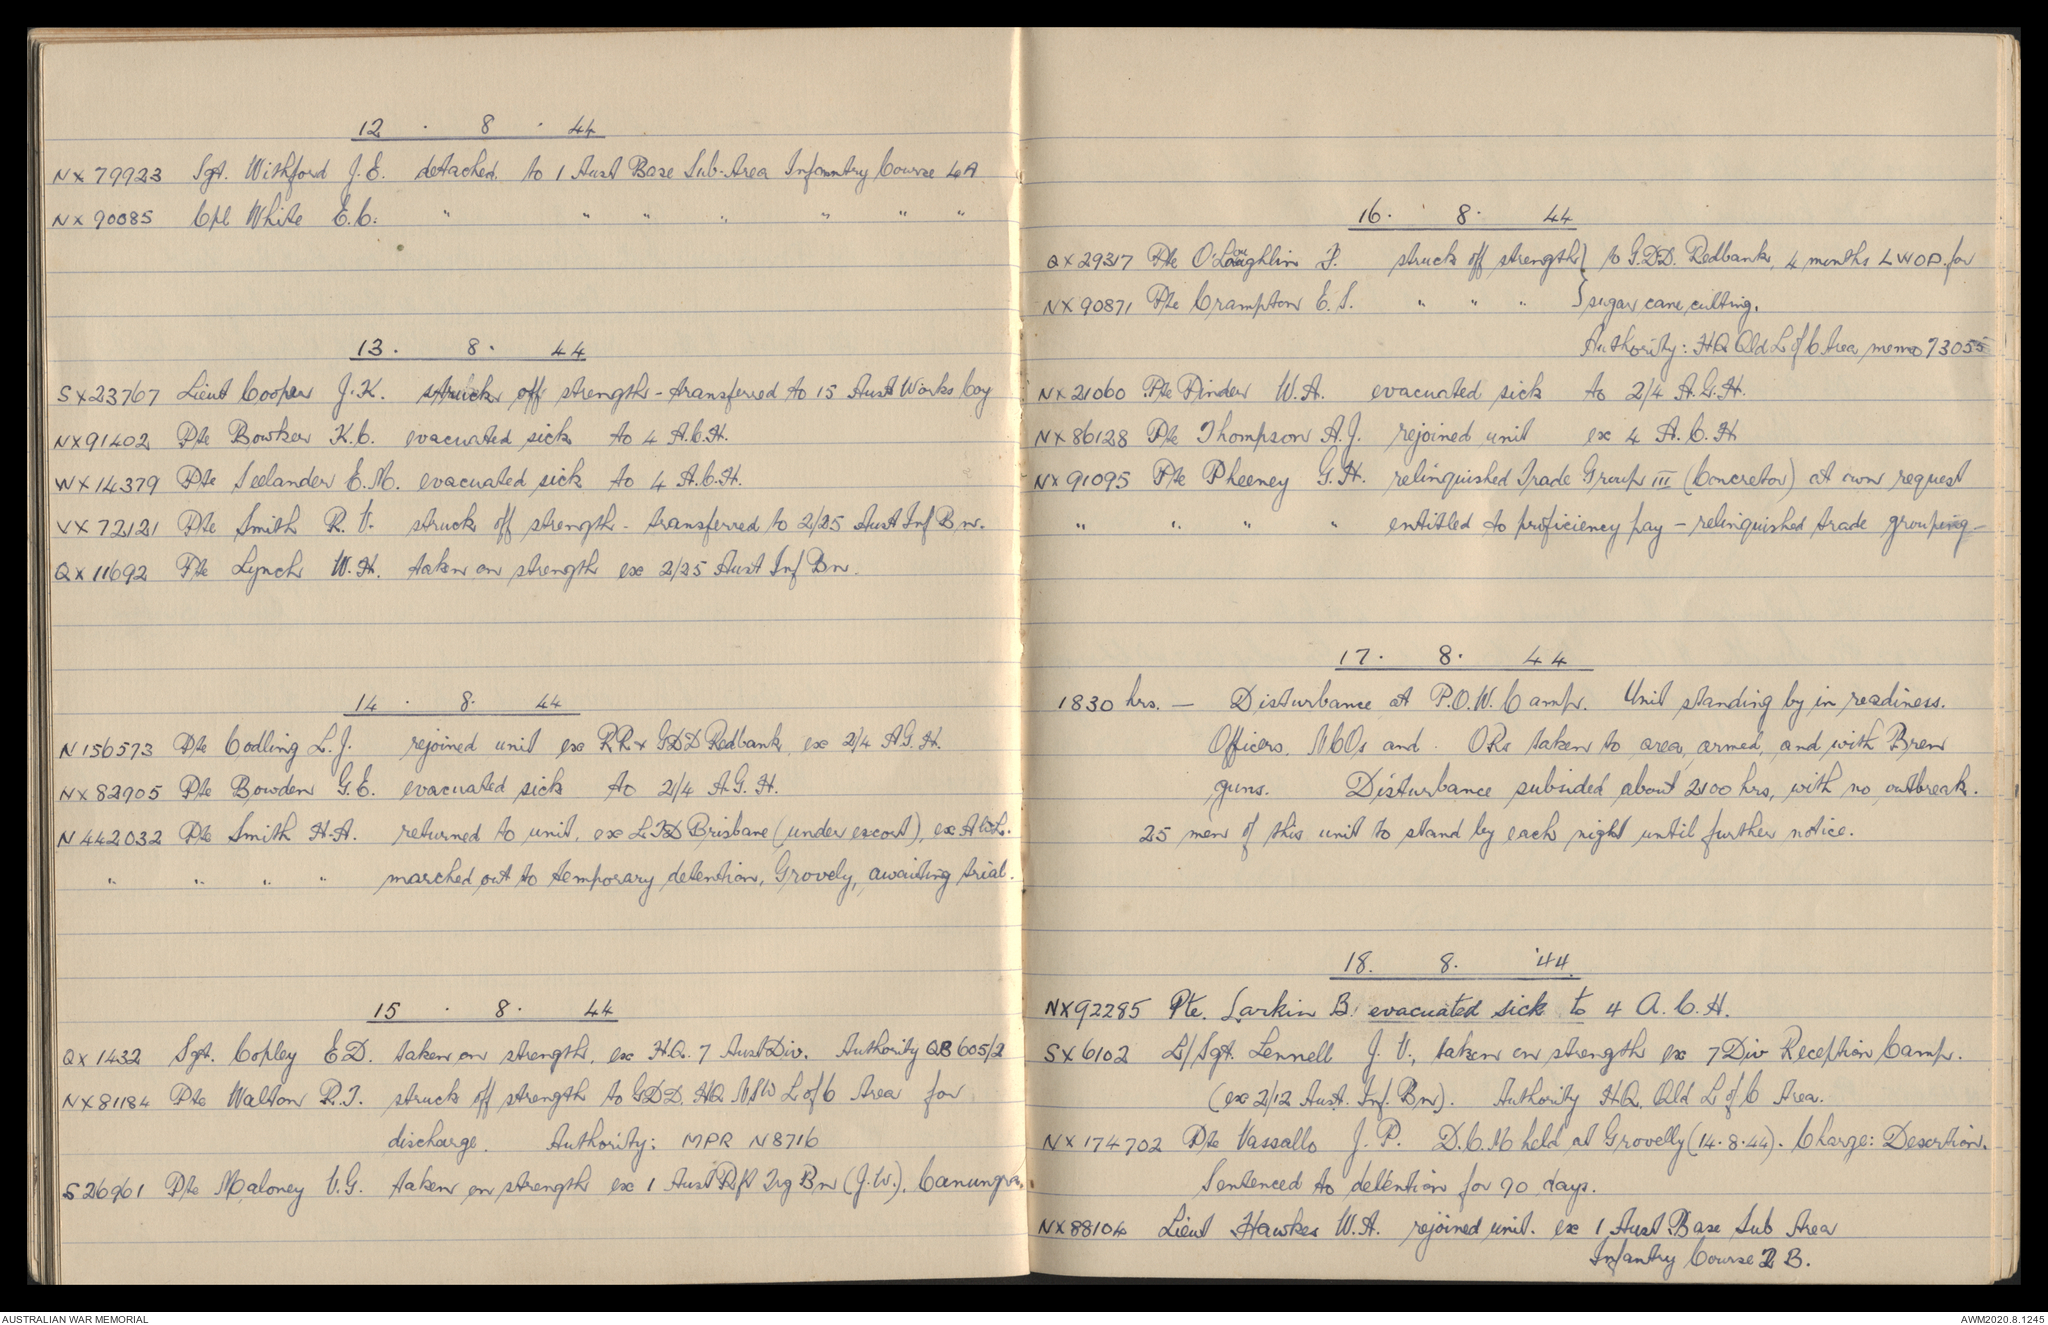 12 . 8 . 44
NX 79923 Sgt. Withford J.E. detached to 1 Aust Base Sub-Area Infanntry Course 4A
NX 90085 Cpl White E.C. " " " " " " "
13. 8. 44
SX23767 Lieut Cooper J.K. struck off strength - transferred to 15 Aust Works Coy
NX91402 Pte Bowker K.C. evacuated sick to 4 A.C.H.
WX14379 Pte Seelander E.M. evacuated sick to 4 A.C.H.
VX72121 Pte Smith R.V. struck off strength - transferred to 2/25 Aust Inf Bn.
QX11692 Pte Lynch W.H. taken on strength ex 2/25 Aust Inf Bn.
14 . 8. 44
N156573 Pte Codling L.J. rejoined unit ex RR & GDD Redbank, ex 2/4 A.G.H.
NX82905 Pte Bowden G.E. evacuated sick to 2/4 A.G.H.
N442032 Pte Smith H.A. returned to unit, ex L.T.D Brisbane (under escort), ex A.W.L.
" " " " marched out to temporary detention, Grovely, awaiting trial.
15 . 8. 44
QX1432 Sgt. Copley E.D. taken on strength, ex H.Q. 7 Aust Div. Authority QB605/2
NX81184 Pte Walton R.J. struck off strength to GDD. HQ NSW L of C Area for
discharge. Authority: MPR N8716
S26961 Pte Maloney V.G. taken on strength ex 1 Aust Rft Trg Bn (J.W.), Canungra.
16. 8. 44
QX29317 Pte O'Loughlin F. struck off strength } to G.D.D. Redbank, 4 months LWOP. for
NX90871 Pte Crampton E.S. " " " } sugar cane cutting.
Authority: HQ Qld L of C Area memo 73055
NX21060 Pte Pinder W.A. evacuated sick to 2/4 A.G.H.
NX86128 Pte Thompson A.J. rejoined unit ex 4 A.C.H
NX91095 Pte Pheeney G.H. relinquished Trade Group III (Concretor) at own request
" " " " entitled to proficiency pay - relinquished trade grouping -
17. 8. 44
1830 hrs. - Disturbance at P.O.W. Camp. Unit standing by in readiness.
Officers, NCOs and . ORs taken to area, armed, and with Bren
guns. Disturbance subsided about 2100 hrs, with no outbreak.
25 men of this unit to stand by each night until further notice.
18. 8. '44.
NX92285 Pte. Larkin B. evacuated sick to 4 A.C.H.
SX6102 L/Sgt. Lennell J.V., taken on strength ex 7 Div Reception Camp.
(ex 2/12 Aust. Inf. Bn). Authority H.Q. Qld L of C Area.
NX174702 Pte Vassallo J.P. D.C.M held at Grovelly (14.8.44). Charge: Desertion.
Sentenced to detention for 90 days.
NX88104 Lieut Hawkes W.A. rejoined unit. ex 1 Aust Base Sub Area
Infantry Course 2 B.
AUSTRALIAN WAR MEMORIAL
AWM2020.8.1245